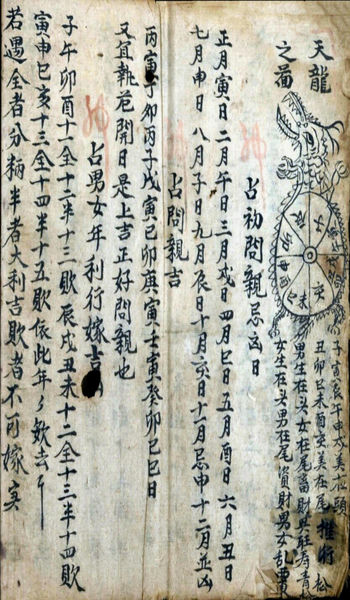 天龍
之啚
子寅辰午申
丑卯巳未酉亥
男生在头女在尾
女生在头男在尾資財男女乱
推行
占初問親忌凶日
正月寅日二月午日三月戍日四月巳日五月酉日六月丑日
七月申日八月子日九月辰日十月亥日十一月忌申十二月並凶
占問親吉
丙寅丁卯丙子戊寅己卯庚寅壬寅癸卯己巳日
又宜執危開日是上吉正好問親也
占男女年利行嫁吉
子午卯酉十一全十二半十三败辰戍丑未十二全十三半十四败
寅申巳亥十三全十四半十五败依此年
若遇全者分柄半者大利吉败者不可嫁